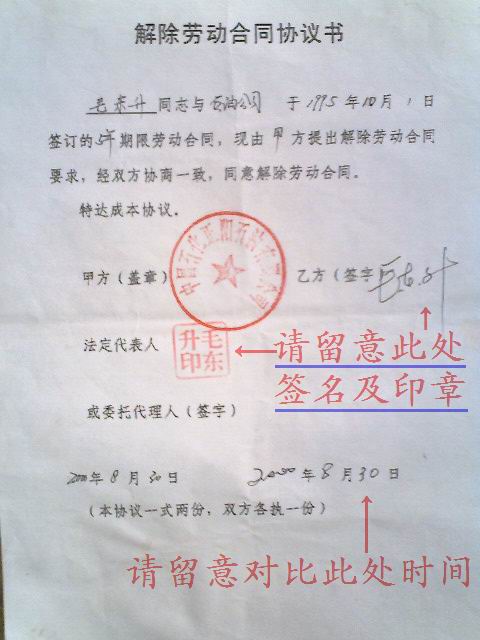 解除劳动合同协议书
毛东升 同志与 石油公司 于1995年10月1日
签订的5年期限劳动合同，现由 甲方提出解除劳动合同
要求，经双方协商一致，同意解除劳动合同。
特达成本协议。
甲方（盖章）
乙方（签字
法定代表人
升毛
印东
请留意此处
签名及印章
或委托代理人（签字）
2000年8月30日
2000年8月30日
（本协议一式两份，双方各执一份）
请留意对比此处时间